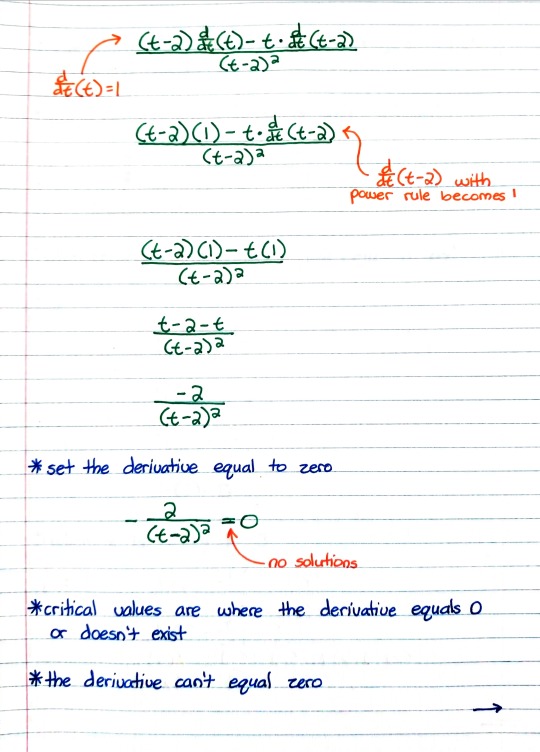 (t-2) d/dt (t) - t · d/dt (t-2)
(t-2)²
d/dt (t) = 1
(t-2)(1) - t · d/dt (t-2)
(t-2)²
d/dt (t-2) with
power rule becomes 1
(t-2)(1) - t(1)
(t-2)²
t-2-t
(t-2)²
-2
(t-2)²
* set the derivative equal to zero
- 2/(t-2)² = 0
no solutions
* critical values are where the derivative equals 0
or doesn't exist
* the derivative can't equal zero
→